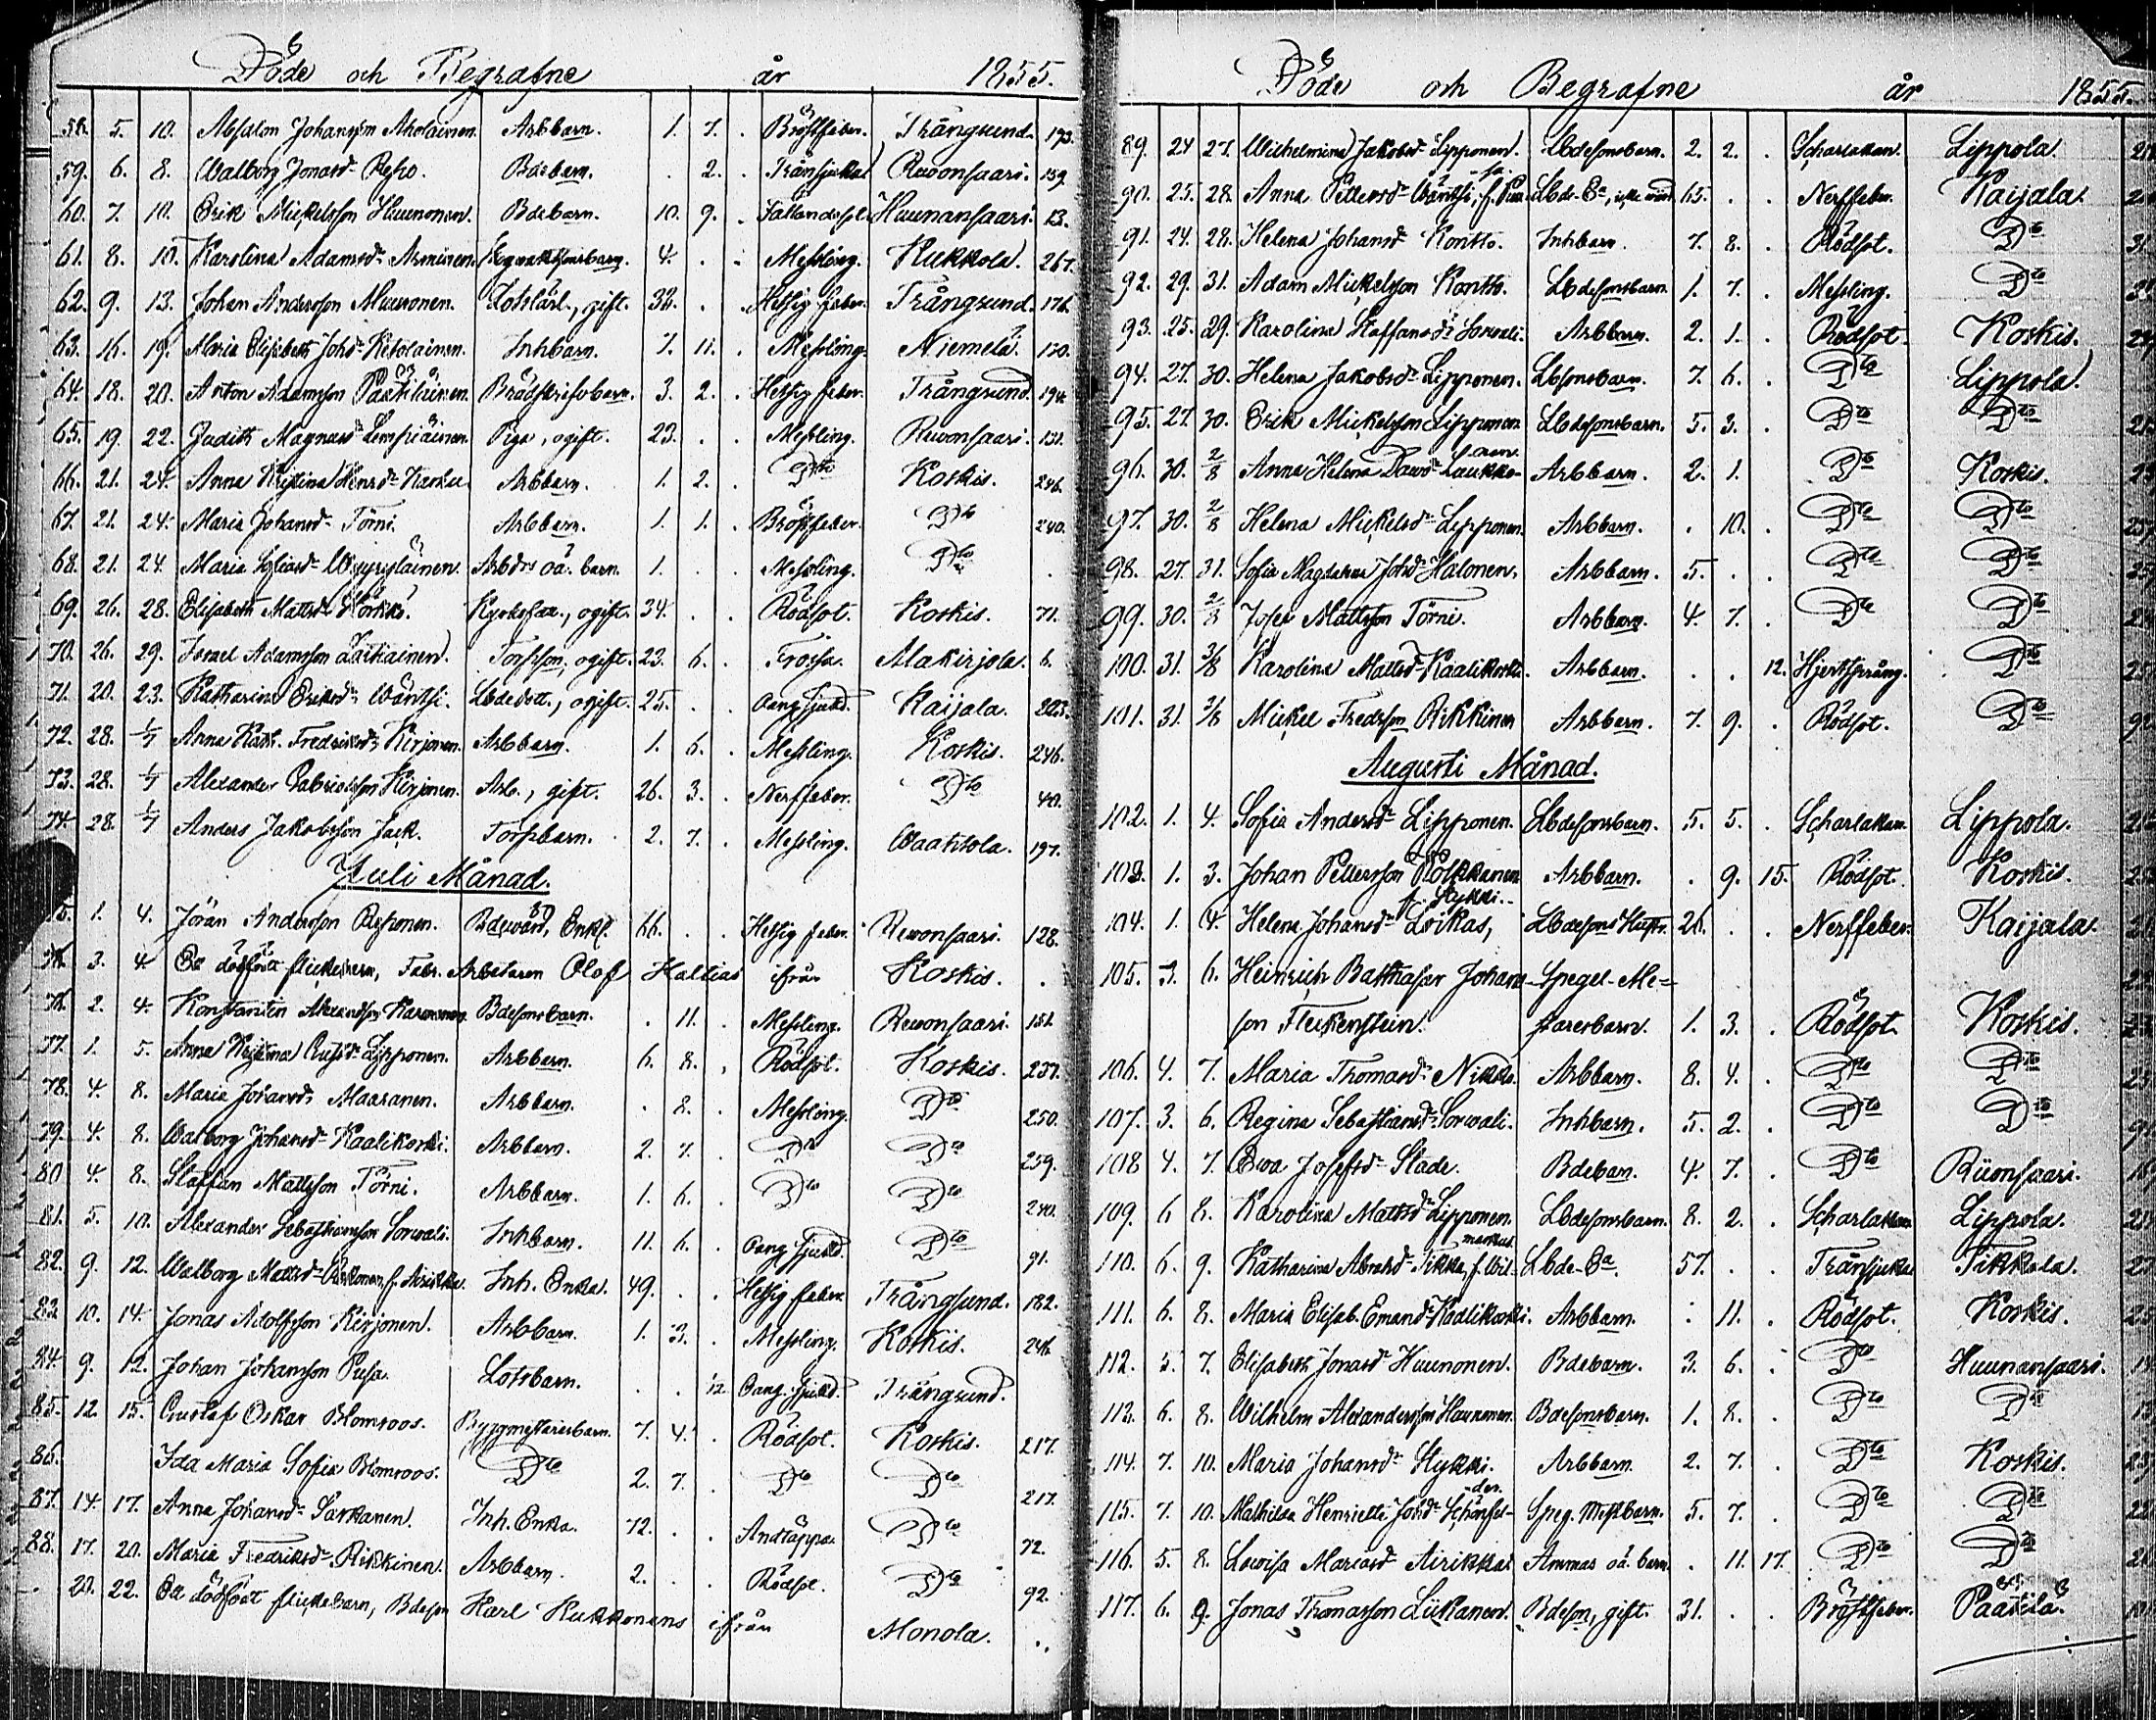 Döde och Begrafne år 1855.
58. 5. 10. Absalon Johansson Akolainen. Arbbarn. 1. 7. . Bröstfeber. Trångsund. 193.
59. 6. 8. Walborg Jonasd Repo. Bdebarn. . 2. . Trånsjuka Rewonsaari. 139.
60. 7. 10. Erik Mickelsson Huunonen. Bdebarn. 10. 9. . Fallandesot. Huunansaari. 13.
61. 8. 10. Karolina Adamsd Arminen. 4. . . Messling. Kukkola. 267.
62. 9. 13. Johan Andersson Muuronen. Lotskarl, gift. 32. . Hettsig feber. Trångsund. 176.
63. 16. 19. Maria Elisabeth Johsd Ketolainen. Inhbarn. 7. 11. . Messling. Niemelä. 130.
64. 18. 20. Anton Adamsson Paakiläinen. 3. 2. . Hettsig feber. Trångsund. 194.
65. 19. 22. Judith Magnusd Lempiäinen. Piga, ogift. 23. . . Messling. Rewonsaari. 131.
66. 21. 24. Anna Kristina Henrsd Karhu. Arbbarn. 1. 2. . Dto Koskis. 246.
67. 21. 24. Maria Johansd Törni. Arbbarn. 1. 1. . Bröstfeber. Dto 240.
68. 21. 24. Maria Wäyryläinen. Arbdrs oä. barn. 1. . . Messling. Dto .
69. 26. 28. Elisabeth Mattsd ogift. 34. . . Rödsot. Koskis. 71.
70. 26. 29. Israel Adamsson Laitiainen. Torpson, ogift. 23. 6. . Frossa. Makirjola. 6.
71. 20. 23. Katharina Eriksd Wäntsi. Lbdedott., ogift. 25. . . Kaijala. 223.
72. 28. 1/7 Anna Kath. Fredriksd Kirjonen. Arbbarn. 1. 6. . Messling. Koskis. 246.
73. 28. 1/7 Alexander Gabrielsson Kirjonen. Arb., gift. 26. 3. . Nerffeber. Dto 40.
74. 28. 1/7 Anders Jakobsson Jack. Torpbarn. 2. 7. . Messling. Waahtola. 197.
Juli Månad.
75. 1. 4. Jöran Andersson Reponen. Enkl. 66. . . Hettsig feber. Rewonsaari. 128.
3. 4. Ett dödfödt flickebarn, Fabr. Arbetaren Olof Haltias ifrån Koskis. .
76. 2. 4. Konstantin Alexandsson Bdesonsbarn. . 11. . Messling. Rewonsaari. 151.
77. 1. 5. Anna Kristina Lipponen. Arbbarn. 6. 8. . Rödsot. Koskis. 237.
78. 4. 8. Maria Johansd Maaranen. Arbbarn. . 8. . Messling. Dto 250.
79. 4. 8. Walborg Johansd Kaalikoski. Arbbarn. 2. 7. . Dto Dto 259.
80 4. 8. Staffan Mattsson Törni. Arbbarn. 1. 6. . Dto Dto 240.
81. 5. 10. Alexander Sebastiansson Sorwali. Inhbarn. 11. 6. . Dto 91.
82. 9. 12. Walborg Mattsd f. Airikka. Inh. Enka. 49. . . Hettsig feber. Trångsund. 182.
83. 10. 14. Jonas Adolfsson Kirjonen. Arbbarn. 1. 3. . Messling. Koskis. 246
84. 9. 12. Johan Johansson Pusa. Lotsbarn. . . 12. Trångsund.
85. 12. 15. Gustaf Oskar Blomroos. Byggmästaresbarn. 7. 4. . Rödsot. Koskis. 217.
86. Ida Maria Sofia Blomroos. Dto 2. 7. . Dto Dto 217.
87. 14. 17. Anna Johansd Särkanen. Inh. Enka. 72. . . Andtäppa. Dto 72.
88. 17. 20. Maria Fredriksd Rikkinen. Arbbarn. 2. . . Rödsot. Dto 92.
20. 22. Ett dödfödt flickebarn, Bdeson Karl Kukkonens ifrån Monola. .
Döde och Begrafne år 1855.
89. 24 27. Wilhelmina Jakobsd Lipponen. Lbdesonsbarn. 2. 2. . Scharlakan. Lippola.
90. 25. 28. Anna Pettersd Wäntsi, f. 65. . . Nerffeber. Kaijala.
91. 24. 28. Helena Johansd Kontto. Inhbarn. 7. 8. . Rödsot. Dto
92. 29. 31. Adam Mickelsson Kontto. Lbdesonsbarn. 1. 7. . Messling. Dto
93. 25. 29. Karolina Staffansd Sorwali. Arbbarn. 2. 1. . Rödsot. Koskis.
94. 27. 30. Helena Jakobsd Lipponen. Lbsonsbarn. 7. 6. . Dto Lippola.
95. 27. 30. Erik Mickelsson Lipponen. Lbdesonsbarn. 5. 3. . Dto Dto
96. 30. 2/8 Anna Helena Dawd Laukkanen. Arbbarn. 2. 1. Dto Koskis.
97. 30. 2/8 Helena Mickelsd Lipponen. Arbbarn. . 10. . Dto Dto
98. 27. 31. Sofia Magdalena Johsd Halonen. Arbbarn. 5. . . Dto Dto
99. 30. 2/8 Josef Mattsson Törni. Arbbarn. 4. 7. . Dto Dto
100. 31. 3/8 Karolina Mattsd Kaalikoski. Arbbarn. . . 12. Hjertsprång. Dto
101. 31. 3/8 Mickel Fredsson Rikkinen Arbbarn. 7. 9. . Rödsot. Dto
Augusti Månad.
102. 1. 4. Sofia Andersd Lipponen. Lbdesonsbarn. 5. 5. . Scharlakan. Lippola.
103. 1. 3. Johan Pettersson Pölkkänen Arbbarn. . 9. 15. Rödsot. Koskis.
104. 1. 4. Helena Johansd Loikas, f. Hykki. Lbdesons Hustr. 26. . . Nerffeber. Kaijala.
105. 3. 6. Heinrich Balthasar Johans- Spegel-Me=
son Fleckenstein. staresbarn. 1. 3. . Rödsot. Koskis.
106. 4. 7. Maria Thomasd Nikko. Arbbarn. 8. 4. . Dto Dto
107. 3. 6. Regina Sebastiansd Sorwali. Inhbarn. 5. 2. . Dto Dto
108 4. 7. Ewa Josefsd Slade. Bdebarn. 4. 7. . Dto Riionsaari.
109. 6 8. Karolina Mattsd Lipponen. Lbdesonsbarn. 8. 2. . Scharlakan. Lippola.
110. 6. 9. Katharina Abrahd Tikka, f. Wil- Lbde-Ea. 57. . . Trånsjuka Tikkala.
111. 6. 8. Maria Elisab. Emand Kaalikoski. Arbbarn. . 11. . Rödsot. Koskis.
112. 5. 7. Elisabeth Jonasd Huunonen. Bdebarn. 3. 6. . Dto Huunansaari.
113. 6. 8. Wilhelm Alexandersson Huunonen. Bdesonsbarn. 1. 8. . Dto Dto
114. 7. 10. Maria Johansd Hykki. Arbbarn. 2. 7. . Dto Koskis.
115. 7. 10. Mathilda Henrietta Johsd Schönfel-der. Speg. Mestbarn. 5. 7. . Dto Dto
116. 5. 8. Lowisa Marcusd Airikka Ammas oä. barn. . 11. 17. Dto Dto
117. 6. 9. Jonas Thomasson Liikanen. Bdeson, gift. 31. . . Bröstfeber. Paakila.